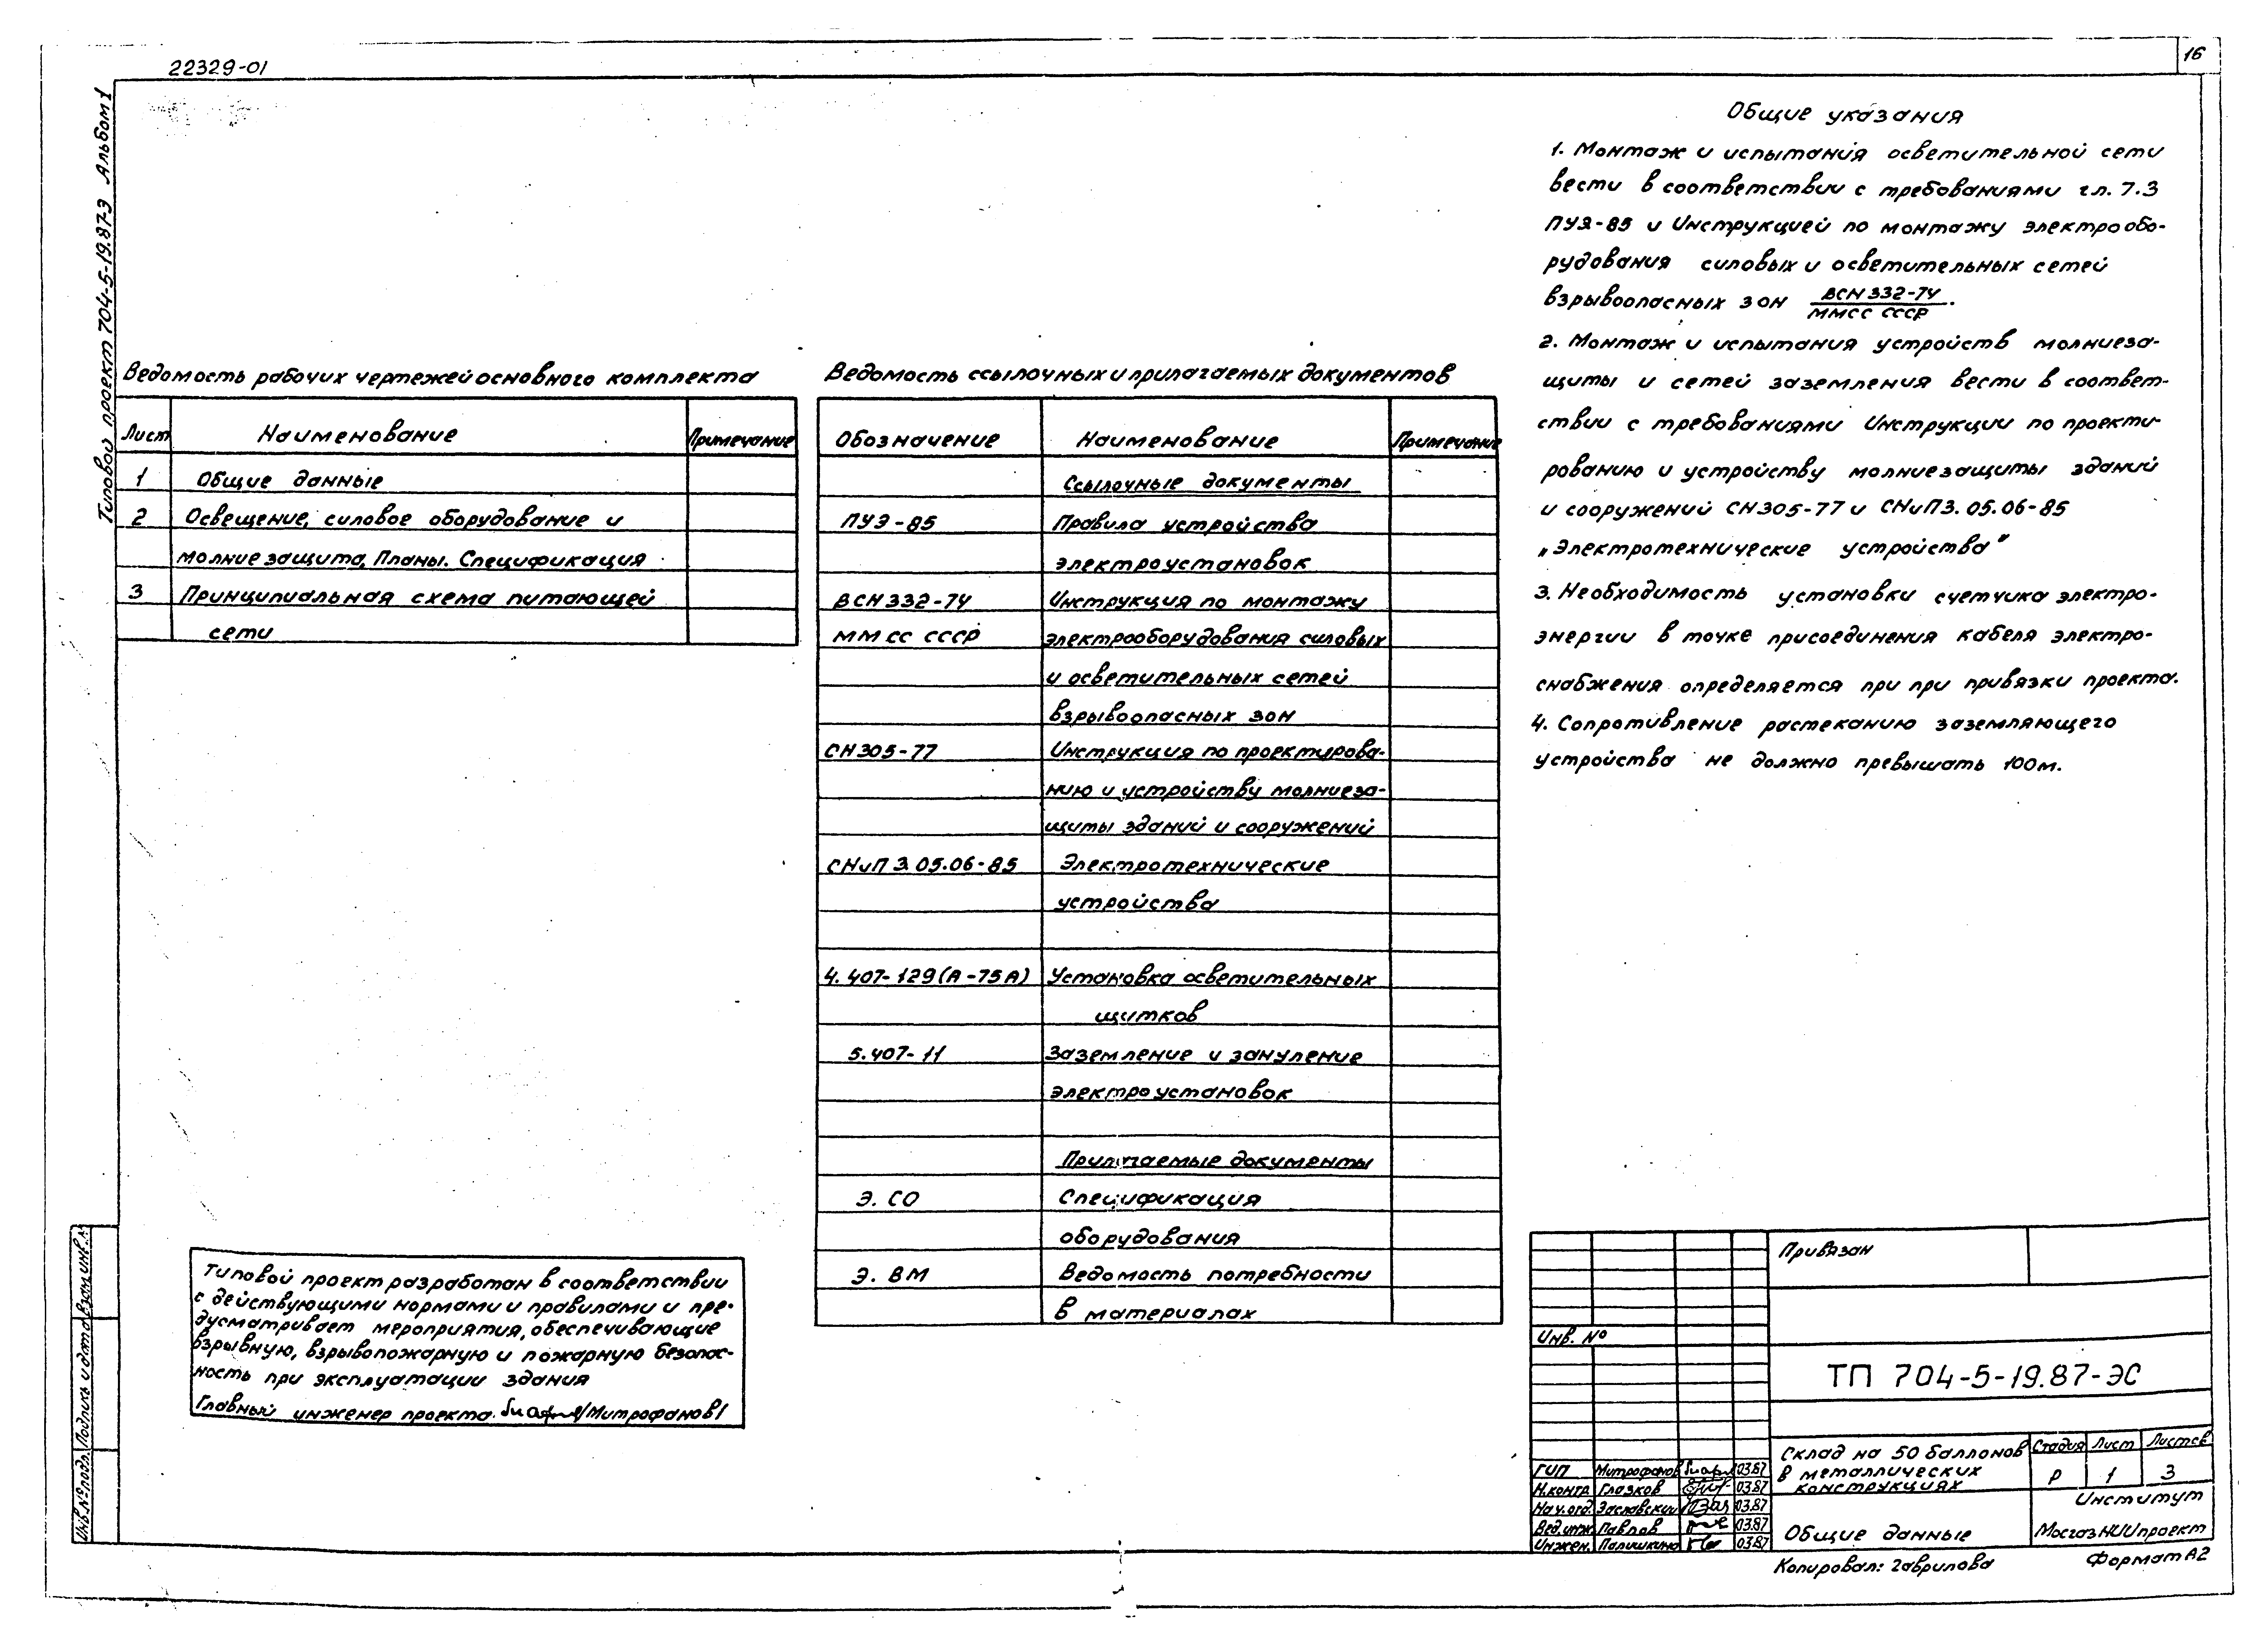 22329-01
16
Типовой проект 704-5-19.87-Э Альбом 1
Ведомость рабочих чертежей основного комплекта
Лист Наименование Примечание
1 Общие данные
2 Освещение, силовое оборудование и
молниезащита. Планы. Спецификация
3 Принципиальная схема питающей
сети
Ведомость ссылочных и прилагаемых документов
Обозначение Наименование Примечание
Ссылочные документы
ПУЭ-85 Правила устройства
электроустановок
ВСН 332-74 Инструкция по монтажу
ММСС СССР электрооборудования силовых
и осветительных сетей
взрывоопасных зон
СН 305-77 Инструкция по проектирова-
нию и устройству молниеза-
щиты зданий и сооружений
СНиП 3.05.06-85 Электротехнические
устройства
4.407-129 (А-75А) Установка осветительных
щитков
5.407-11 Заземление и зануление
электроустановок
Прилагаемые документы
Э. СО Спецификация
оборудования
Э. ВМ Ведомость потребности
в материалах
Общие указания
1. Монтаж и испытания осветительной сети
вести в соответствии с требованиями гл. 7.3
ПУЭ-85 и Инструкцией по монтажу электрообо-
рудования силовых и осветительных сетей
взрывоопасных зон ВСН 332-74
ММСС СССР.
2. Монтаж и испытания устройств молниеза-
щиты и сетей заземления вести в соответ-
ствии с требованиями Инструкции по проекти-
рованию и устройству молниезащиты зданий
и сооружений СН305-77 и СНиП 3.05.06-85
„Электротехнические устройства"
3. Необходимость установки счетчика электро-
энергии в точке присоединения кабеля электро-
снабжения определяется при при привязки проекта.
4. Сопротивление растеканию заземляющего
устройства не должно превышать 100м.
Типовой проект разработан в соответствии
с действующими нормами и правилами и пре-
дусматривает мероприятия, обеспечивающие
взрывную, взрывопожарную и пожарную безопас-
ность при эксплуатации здания
Главный инженер проекта /Митрофанов/
Инв.№подл. Подпись и дата Взам.инв.№
Привязан
Инв. №
ТП 704-5-19.87-ЭС
ГИП Митрофанов 03.87
Н.контр. Глазков 03.87
Нач.отд. Заславский 03.87
Вед.инж. Павлов 03.87
Инжен. Палишкина 03.87
Склад на 50 баллонов
в металлических
конструкциях
Стадия Лист Листов
Р 1 3
Общие данные
Институт
МосгазНИИпроект
Копировал: Гаврилова
Формат А2